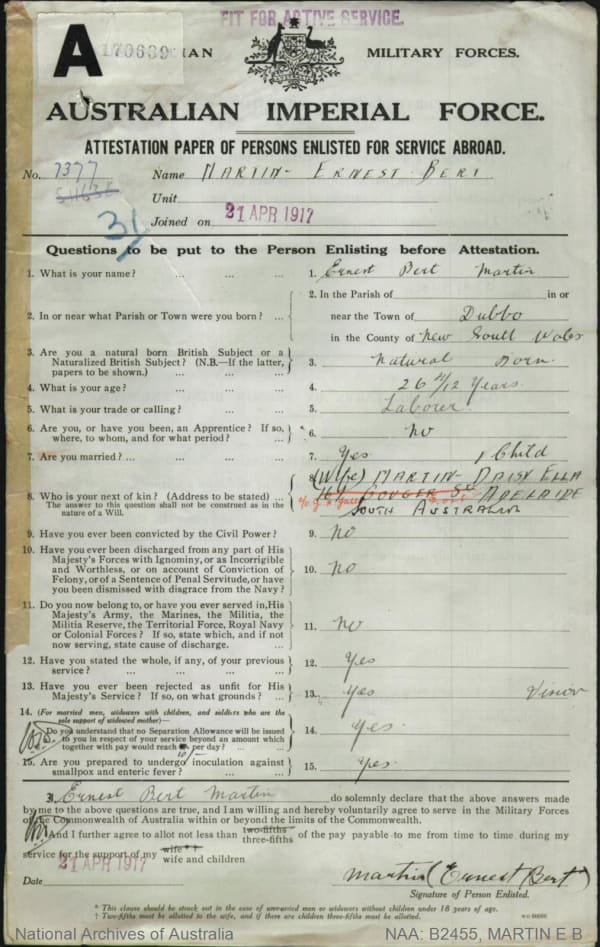 FIT FOR ACTIVE SERVICE.
A 170639 IAN MILITARY FORCES.
AUSTRALIAN IMPERIAL FORCE.
ATTESTATION PAPER OF PERSONS ENLISTED FOR SERVICE ABROAD.
No. 7377 Name MARTIN - ERNEST BERT
Unit
31 Joined on 21 APR 1917
Questions to be put to the Person Enlisting before Attestation.
1. What is your name? ... ... ... 1. Ernest Bert Martin
2. In or near what Parish or Town were you born? ... 2. In the Parish of in or
near the Town of Dubbo
in the County of New South Wales
3. Are you a natural born British Subject or a
Naturalized British Subject? (N.B.—If the latter,
papers to be shown.) ... ... 3. Natural Born
4. What is your age? ... ... ... 4. 26 4/12 Years
5. What is your trade or calling? ... ... 5. Labourer
6. Are you, or have you been, an Apprentice? If so,
where, to whom, and for what period? ... 6. No
7. Are you married? ... ... ... 7. Yes , Child
8. Who is your next of kin? (Address to be stated) ... 8. (Wife) MARTIN - DAISY ELLA
The answer to this question shall not be construed as in the
nature of a Will.
GOUGER St ADELAIDE
SOUTH AUSTRALIA
9. Have you ever been convicted by the Civil Power? 9. No
10. Have you ever been discharged from any part of His
Majesty's Forces with Ignominy, or as Incorrigible
and Worthless, or on account of Conviction of
Felony, or of a Sentence of Penal Servitude, or have
you been dismissed with disgrace from the Navy? 10. No
11. Do you now belong to, or have you ever served in, His
Majesty's Army, the Marines, the Militia, the
Militia Reserve, the Territorial Force, Royal Navy
or Colonial Forces? If so, state which, and if not
now serving, state cause of discharge. ... 11. No
12. Have you stated the whole, if any, of your previous
service? ... ... ... ... 12. Yes
13. Have you ever been rejected as unfit for His
Majesty's Service? If so, on what grounds? ... 13. Yes Vision
14. (For married men, widowers with children, and soldiers who are the
sole support of widowed mother)—
Do you understand that no Separation Allowance will be issued
to you in respect of your service beyond an amount which
together with pay would reach per day? ... ... 14. Yes.
15. Are you prepared to undergo inoculation against
smallpox and enteric fever? ... ... 15. Yes.
I, Ernest Bert Martin do solemnly declare that the above answers made
by me to the above questions are true, and I am willing and hereby voluntarily agree to serve in the Military Forces
of the Commonwealth of Australia within or beyond the limits of the Commonwealth.
And I further agree to allot not less than two-fifths three-fifths of the pay payable to me from time to time during my
service for the support of my wife * † wife and children
21 APR 1917
Date Martin (Ernest Bert)
Signature of Person Enlisted.
* This clause should be struck out in the case of unmarried men or widowers without children under 18 years of age.
† Two-fifths must be allotted to the wife, and if there are children three-fifths must be allotted.
National Archives of Australia NAA: B2455, MARTIN E B